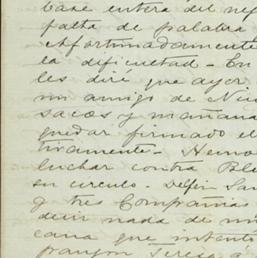 base entera del neg
falta de palabra
Afortunadamente
la dificultad - En
les diré que ayer
mi amigo de Nic
sacos y mañana
quedar firmado el
tivamente - Hemos
luchar contra Bl
su circulo - Delfin San
y tres Compañias
decir nada de mi
cana que intento
Teresa a